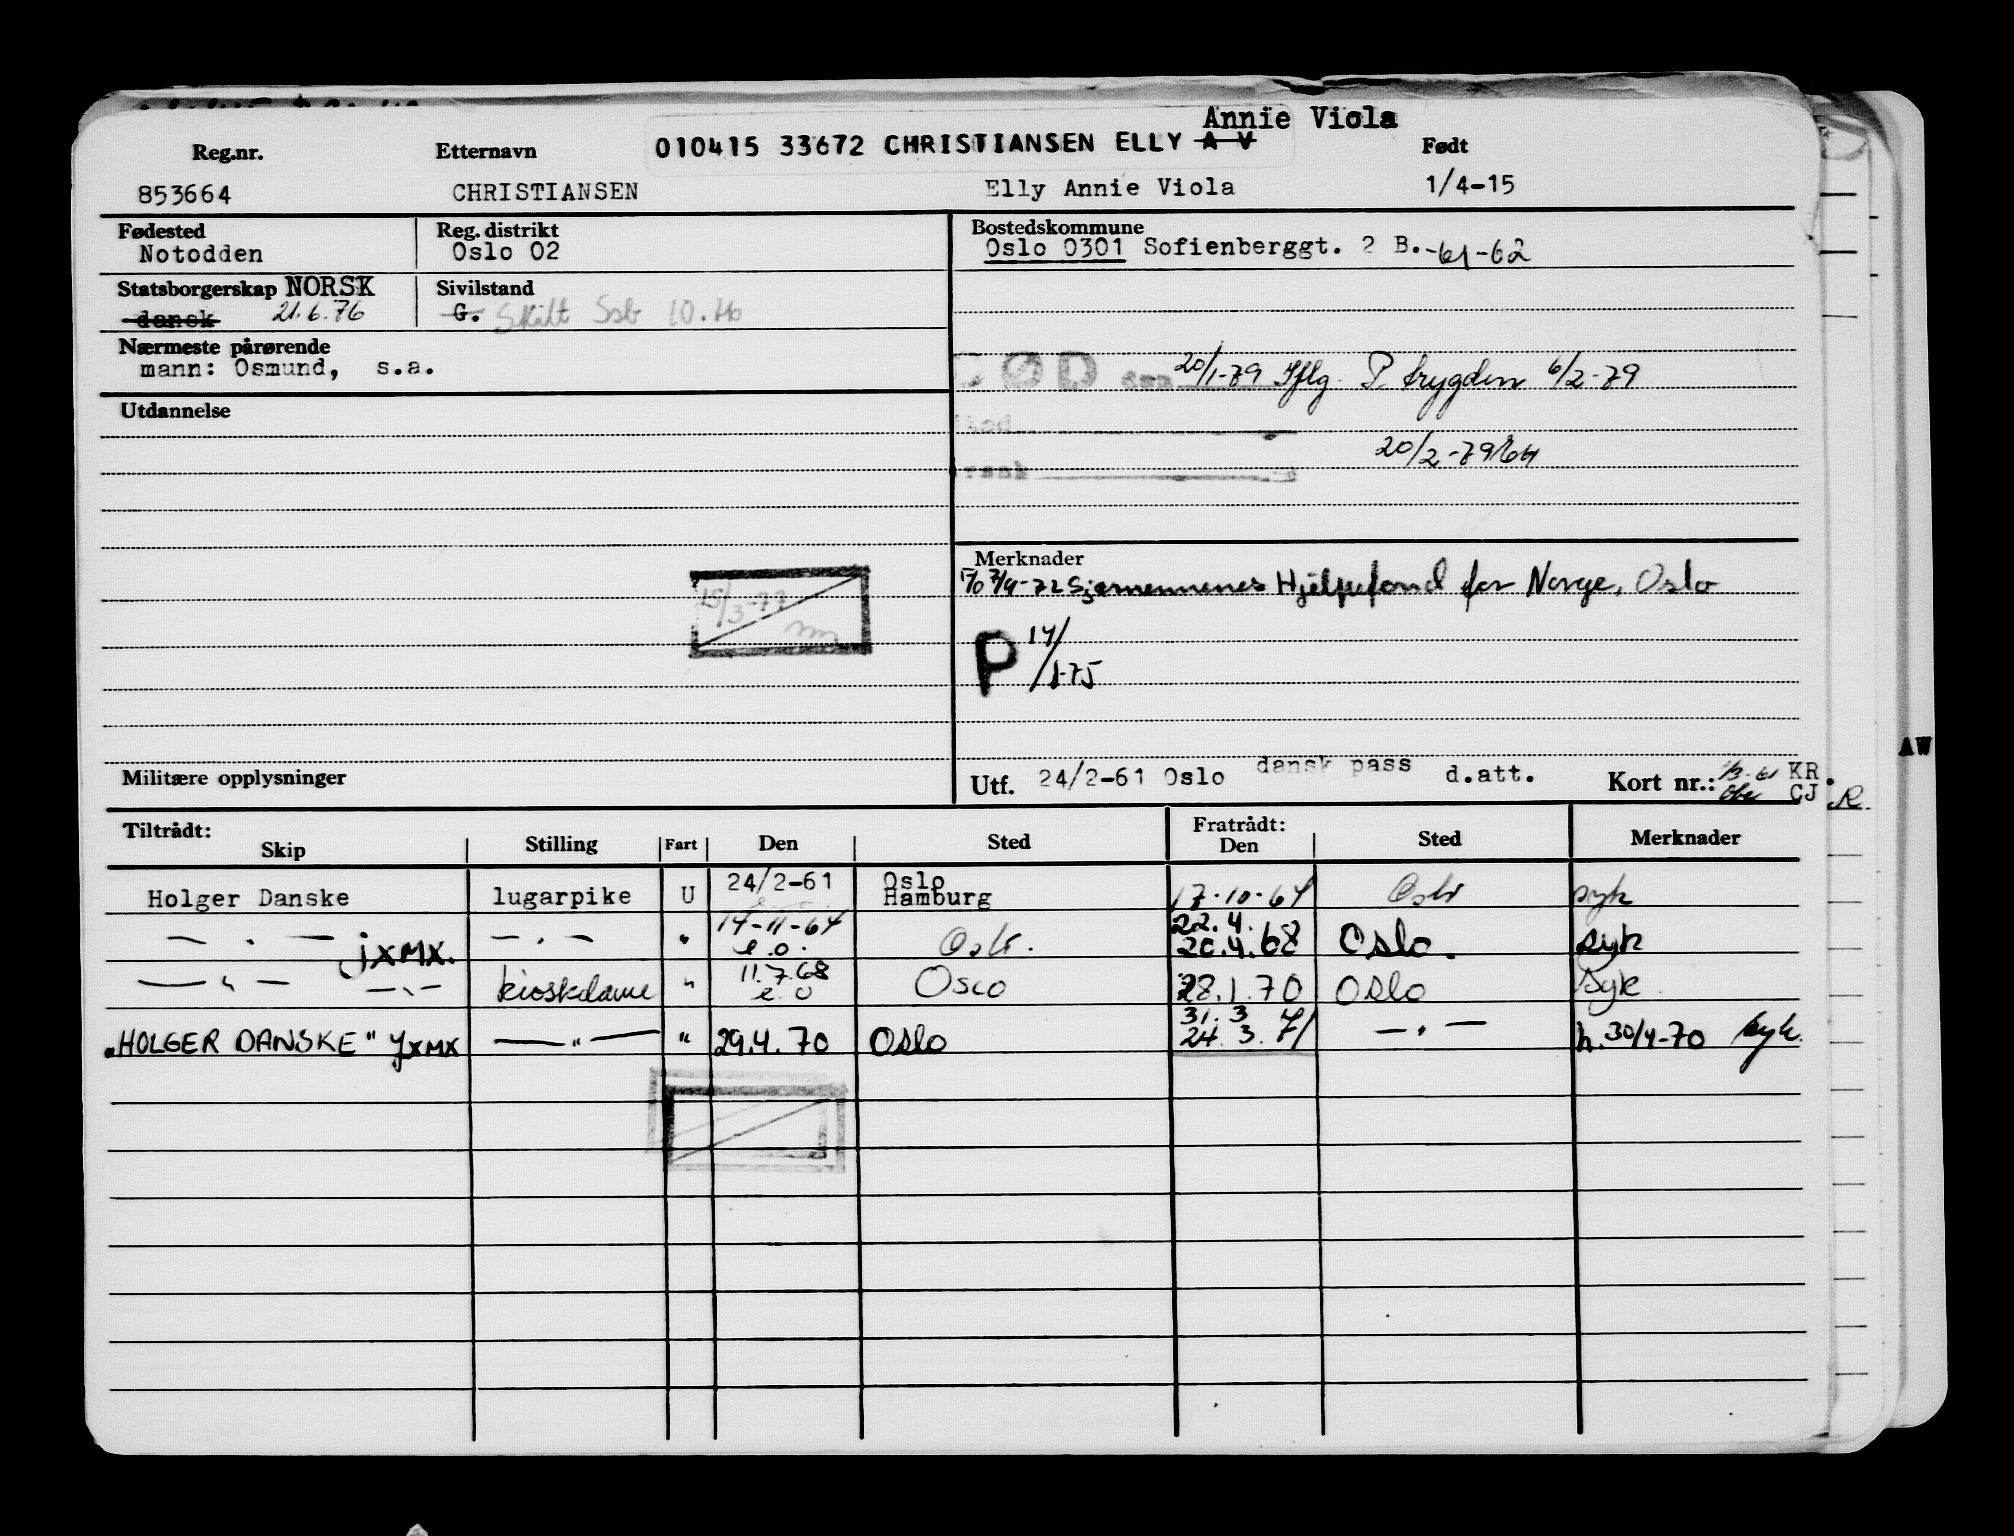 Annie Viola
010415 33672 CHRISTIANSEN ELLY A V
Reg.nr. Etternavn Født
853664 CHRISTIANSEN Elly Annie Viola 1/4-15
Fødested Reg. distrikt Bostedskommune
Notodden Oslo 02 Oslo 0301 Sofienberggt. 2 B. -61-62
Statsborgerskap NORSK Sivilstand
dansk 21.6.76 G. Skilt Ssb 10.76
Nærmeste pårørende
mann: Osmund, s.a.
20/1-79 Iflg. P. trygden 6/2-79
Utdannelse
20/2-79
Merknader
7/4-72 Sjømennenes Hjelpefond for Norge, Oslo
15/3-77
P 14/1-75
Militære opplysninger
Utf. 24/2-61 Oslo dansk pass d.att. Kort nr.: KR.
CJ R.
AW
Tiltrådt: Fratrådt:
Skip Stilling Fart Den Sted Den Sted Merknader
Holger Danske lugarpike U 24/2-61 Oslo Hamburg 17-10-64 Oslo syk
— " — jxmx. — " — " 14-11-64 e.o. Oslo. 22.4. 20.4.68 Oslo. syk
— " — — " — kioskdame " 11.7.68 e.o Oslo 28.1.70 Oslo Syk.
"HOLGER DANSKE" jxmx — " — " 29.4.70 Oslo 31.3 24.3.71 — " — h.30/4-70 syk.